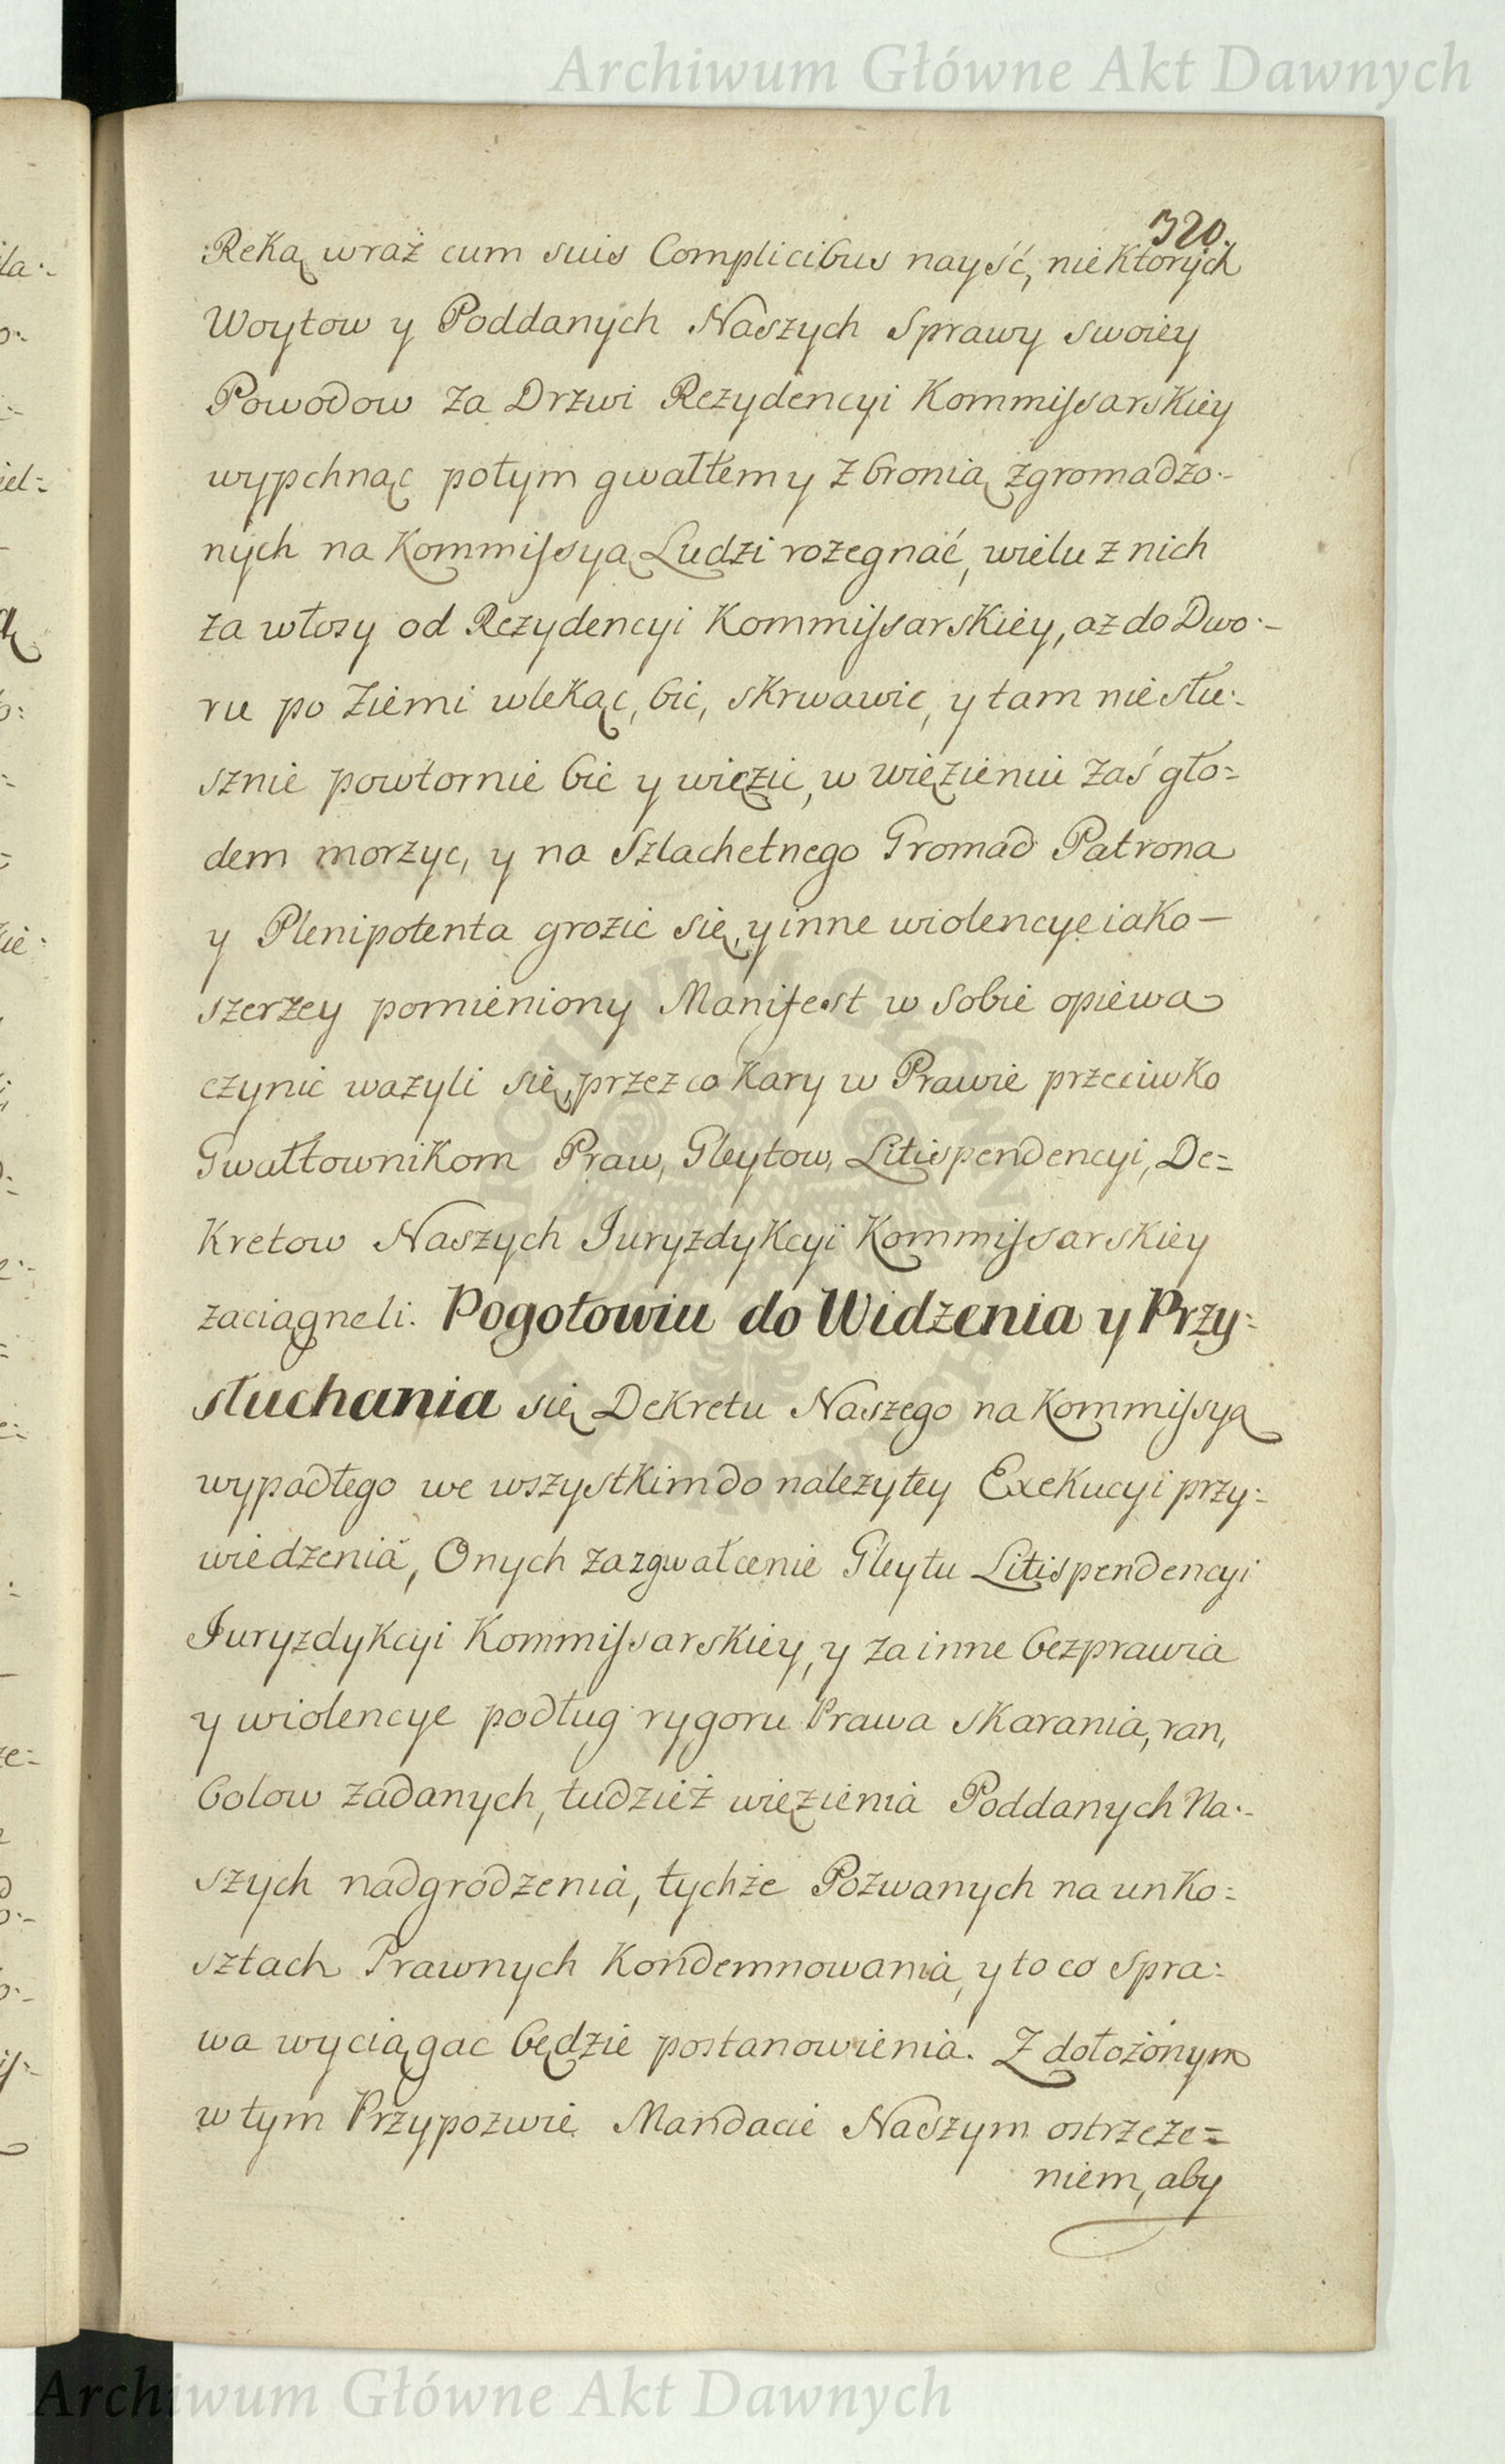 Archiwum Główne Akt Dawnych
320.
Ręką wraż cum suis Complicibus nayść, niektorych
Woytow y Poddanych Naszych Sprawy swoiey
Powodow za Drzwi Rezydencyi Kommissarskiey
wypchnąc potym gwałtem y z bronią zgromadzo-
nych na Kommissyą Ludzi rozegnać, wielu z nich
za włosy od Rezydencyi Kommissarskiey, az do Dwo-
ru po Ziemi wlekąc, bic, skrwawic, y tam niesłu-
sznie powtornie bic y więzic, w więzieniu zaś gło=
dem morzyc, y na Szlachetnego Gromad Patrona
y Plenipotenta grozic się, y inne wiolencye iako—
szerzey pomieniony Manifest w sobie opiewa
czynic wazyli się, przez co kary w Prawie przeciwko
Gwałtownikom Praw, Gleytow, Litispendencyi, De=
kretow Naszych Juryzdykcyi Kommissarskiey
zaciągneli. Pogotowiu do Widzenia y Przy=
słuchania się Dekretu Naszego na Kommissyą
wypadłego we wszystkim do nalezytey Exekucyi przy=
wiedzenia, Onych za zgwałcenie Gleytu Litispendencyi
Juryzdykcyi Kommissarskiey, y za inne bezprawia
y wiolencye podług rygoru Prawa skarania, ran,
bolow zadanych, tudzież więzienia Poddanych Na-
szych nadgrodzenia, tychże Pozwanych na unko=
sztach Prawnych Kondemnowania, y to co spra=
wa wyciągac będzie postanowienia. Z dołożonym
w tym Przypozwie Mandacie Naszym ostrzeze=
niem, aby
Archiwum Główne Akt Dawnych